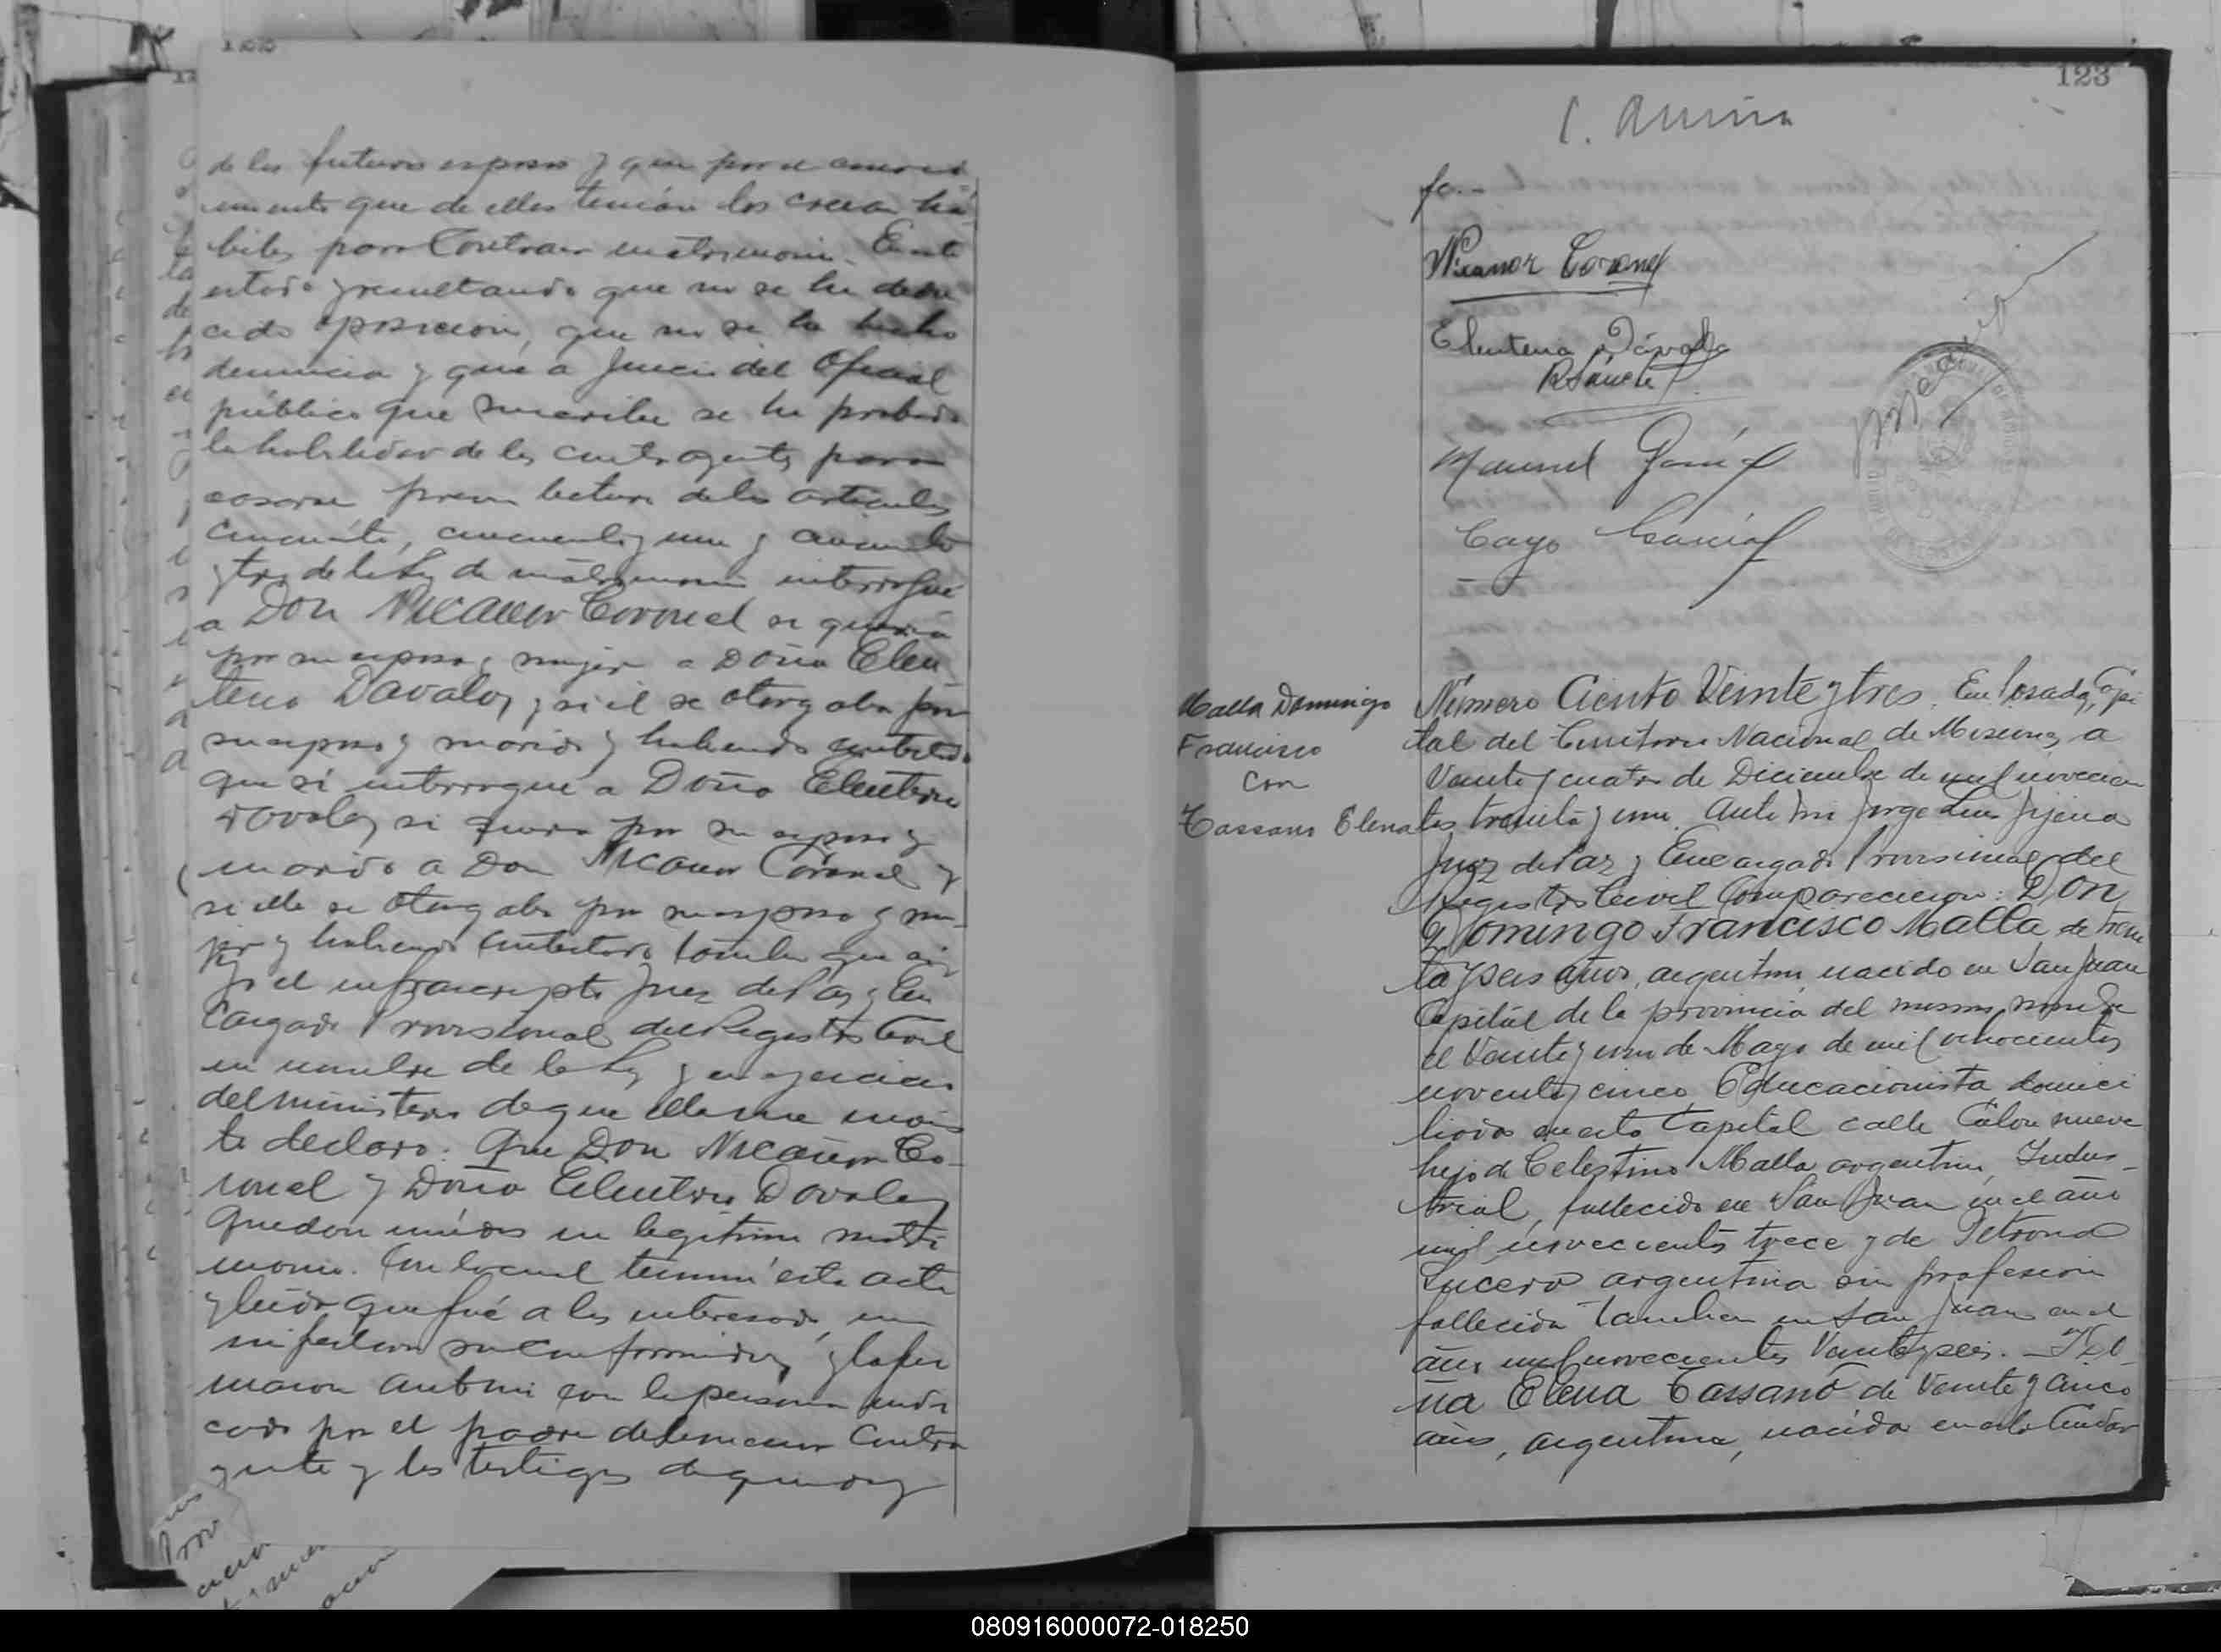 de los futuros esposos y que por el conoci
miento que de ellos tenían los creían há
biles para Contraer matrimonio. En este
estado y resultando que no se ha dedu
cido oposición, que no se ha hecho
denuncia y que a juicio del Oficial
público que suscribe se ha probado
la habilidad de los contrayentes para
casarse previa lectura de los artículos
cincuenta, cincuenta y uno y cincuenta
y tres de la Ley de matrimonio interrogué
a Don Nicanor Coronel si quería
por su esposa y mujer a Doña Eleu
teria Davalos y si él se otorgaba por
su esposo y marido y habiendo contestado
que sí interrogué a Doña Eleuteria
Davalos si quería por su esposo y
marido a Don Nicanor Coronel y
si ella se otorgaba por su esposa y mu-
jer y habiendo contestado también que sí
yo el infrascripto Juez de Paz y En
cargado Provisional del Registro Civil
en nombre de la Ley y en ejercicio
del ministerio de que ella me invis
te declaro: Que Don Nicanor Co-
ronel y Doña Eleuteria Davalos
quedan unidos en legítimo matri
monio. Con lo cual terminó esta acta
y leída que fué a los interesados, ma
nifestaron su conformidad y la fir
maron ante mi con la persona indi
cada por el padre del menor Contra
yente y los testigos de que doy
123
fe.-
Nicanor Coronel
Eleuteria Dávalo
Manuel
Cayo García
Malla Domingo
Francisco
Con
Tassano Elena
Número Ciento Veinte y tres. En Posadas, Capi
tal del Territorio Nacional de Misiones, a
Veinte y cuatro de Diciembre de mil novecien
tos treinta y uno. Ante mi Jorge Luis
Juez de Paz y Encargado Provisional del
Registro Civil Comparecieron: Don
Domingo Francisco Malla, de trein
ta y seis años, argentino, nacido en San Juan
Capital de la provincia del mismo nombre
el Veinte y uno de Mayo de mil ochocientos
noventa y cinco, Educacionista domici
liado en esta Capital calle Colón nueve
hijo de Celestino Malla argentino, Indus-
trial, fallecido en San Juan en el año
mil novecientos trece y de Petrona
Lucero argentina sin profesión
fallecida también en San Juan en el
año mil novecientos Veinte y seis. - Y Do-
ña Elena Tassano de Veinte y cinco
años, argentina, nacida en esta Ciudad
080916000072-018250